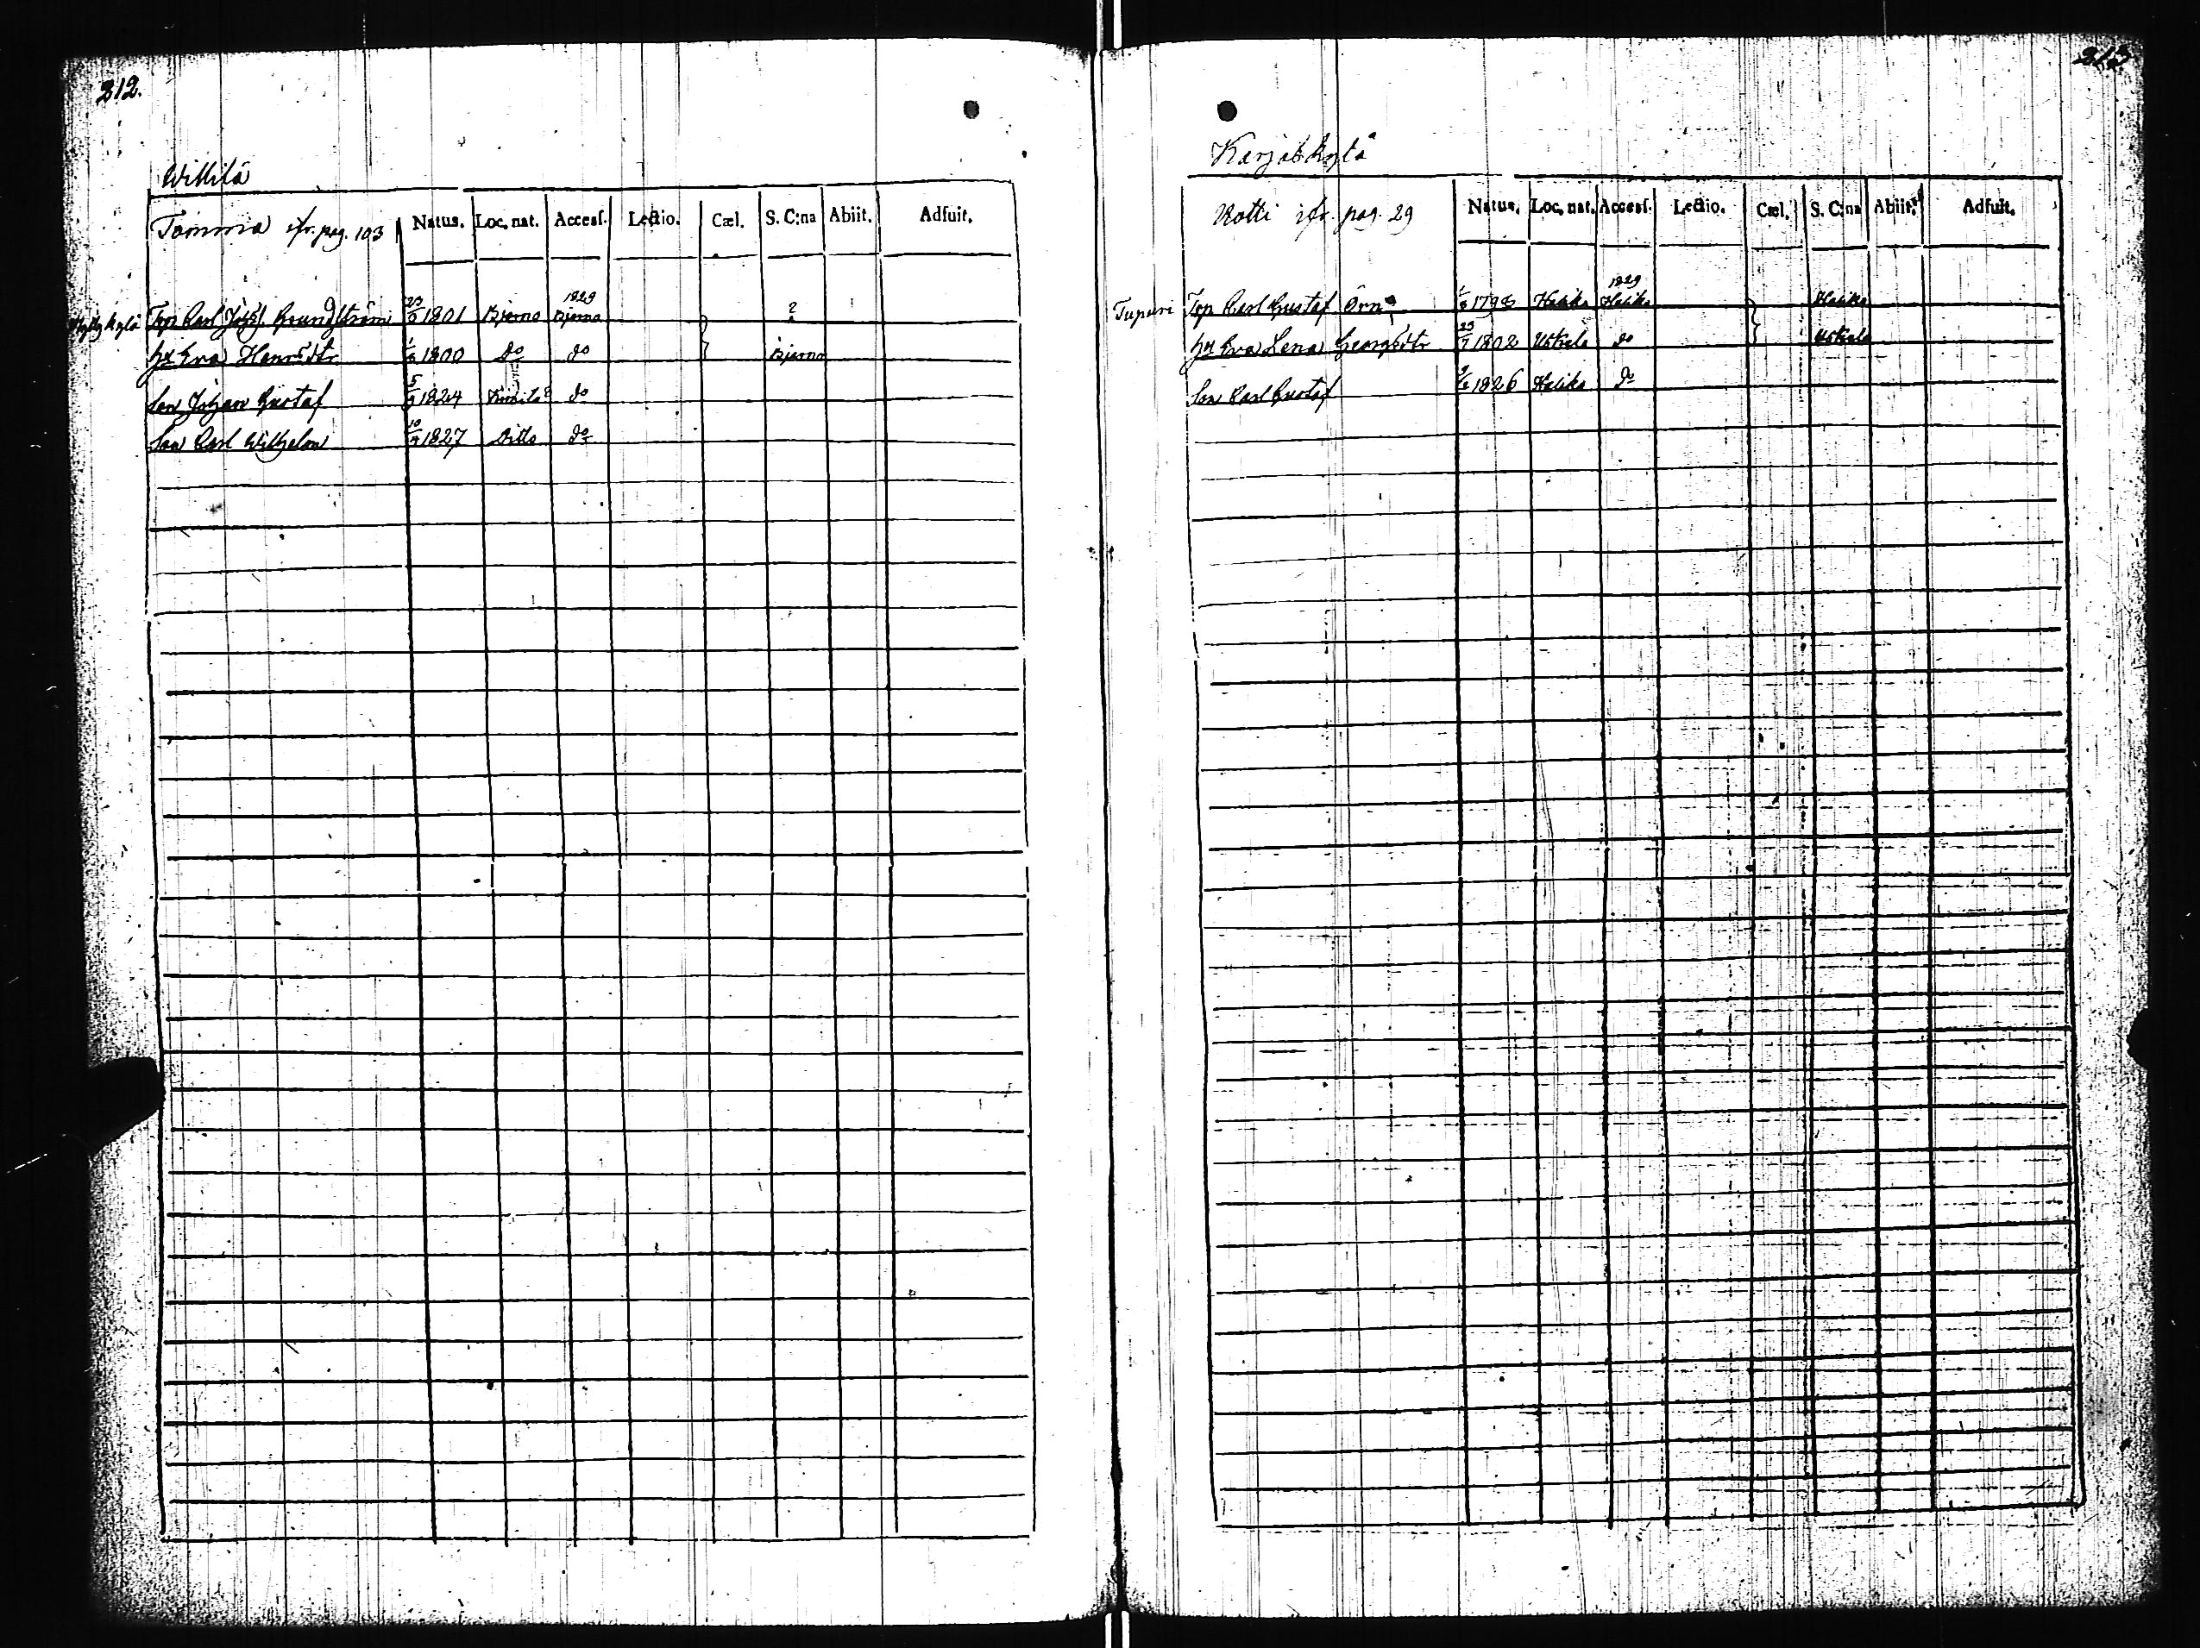 212.
Willilä
Tömmä ifr. pag. 103 Natus. Loc. nat. Accesſ. Lectio. Cæl. S. C:na Abiit. Adfuit.
1829
Torp Carl Johan Grundström 1801 Bjerno Bjerno 2
hu Eva Henrsdtr 1800 Do do Bjerno
Son Johan Gustaf 1824 Kimito do
Son Carl Wilhelm 1827 Ditto do
213
Karjaskylä
Rotti ifr. pag. 29 Natus. Loc. nat. Accesſ. Lectio. Cæl. S. C:na Abiit. Adfuit.
1829
Tupuri Torp Carl Gustaf Örn 1798 Haliko Haliko Haliko
hu Eva Lena Georgsdtr 23/7 1802 Uskela do Uskela
Son Carl Gustaf 1826 Haliko do